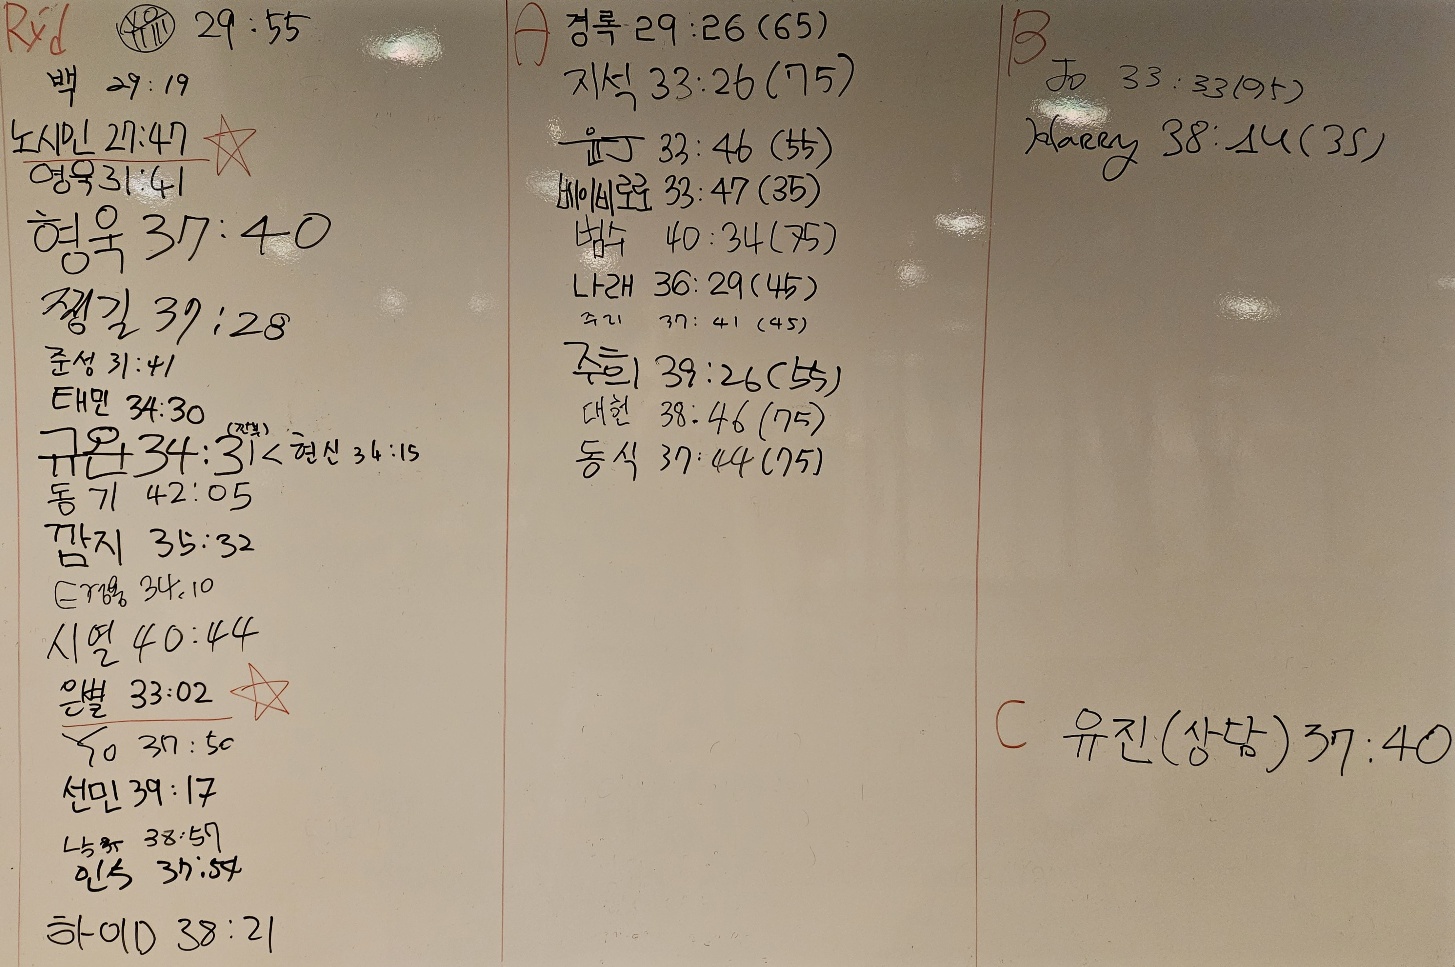 Rx'd
유 29:55
백 29:19
노시민 27:47
영욱 31:41
형욱 37:40
쩽길 37:28
준성 31:41
태민 34:30
규완 34:31 < 현신 34:15
동기 42:05
깜지 35:32
34.10
시열 40:44
은별 33:02
Yo 37:50
선민 39:17
38:57
인수 37:54
하이D 38:21
A
경록 29:26 (65)
지석 33:26 (75)
윤J 33:46 (55)
베이비로로 33:47 (35)
범수 40:34 (75)
나래 36:29 (45)
주리 37:41 (45)
주희 39:26 (55)
대헌 38.46 (75)
동식 37:44 (75)
B
Jo 33:33 (95)
Harry 38:14 (35)
C 유진(상담) 37:40